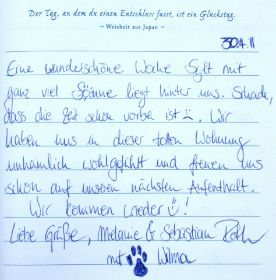 Der Tag, an dem du einen Entschluss fasst, ist ein Glückstag.
– Weisheit aus Japan –
30.4.11
Eine wunderschöne Woche Sylt mit
ganz viel Sonne liegt hinter uns. Schade,
dass die Zeit schon vorbei ist :-(. Wir
haben uns in dieser tollen Wohnung
unheimlich wohlgefühlt und freuen uns
schon auf unseren nächsten Aufenthalt.
Wir kommen wieder :-)!
Liebe Grüße, Melanie & Sebastian
mit Wilma